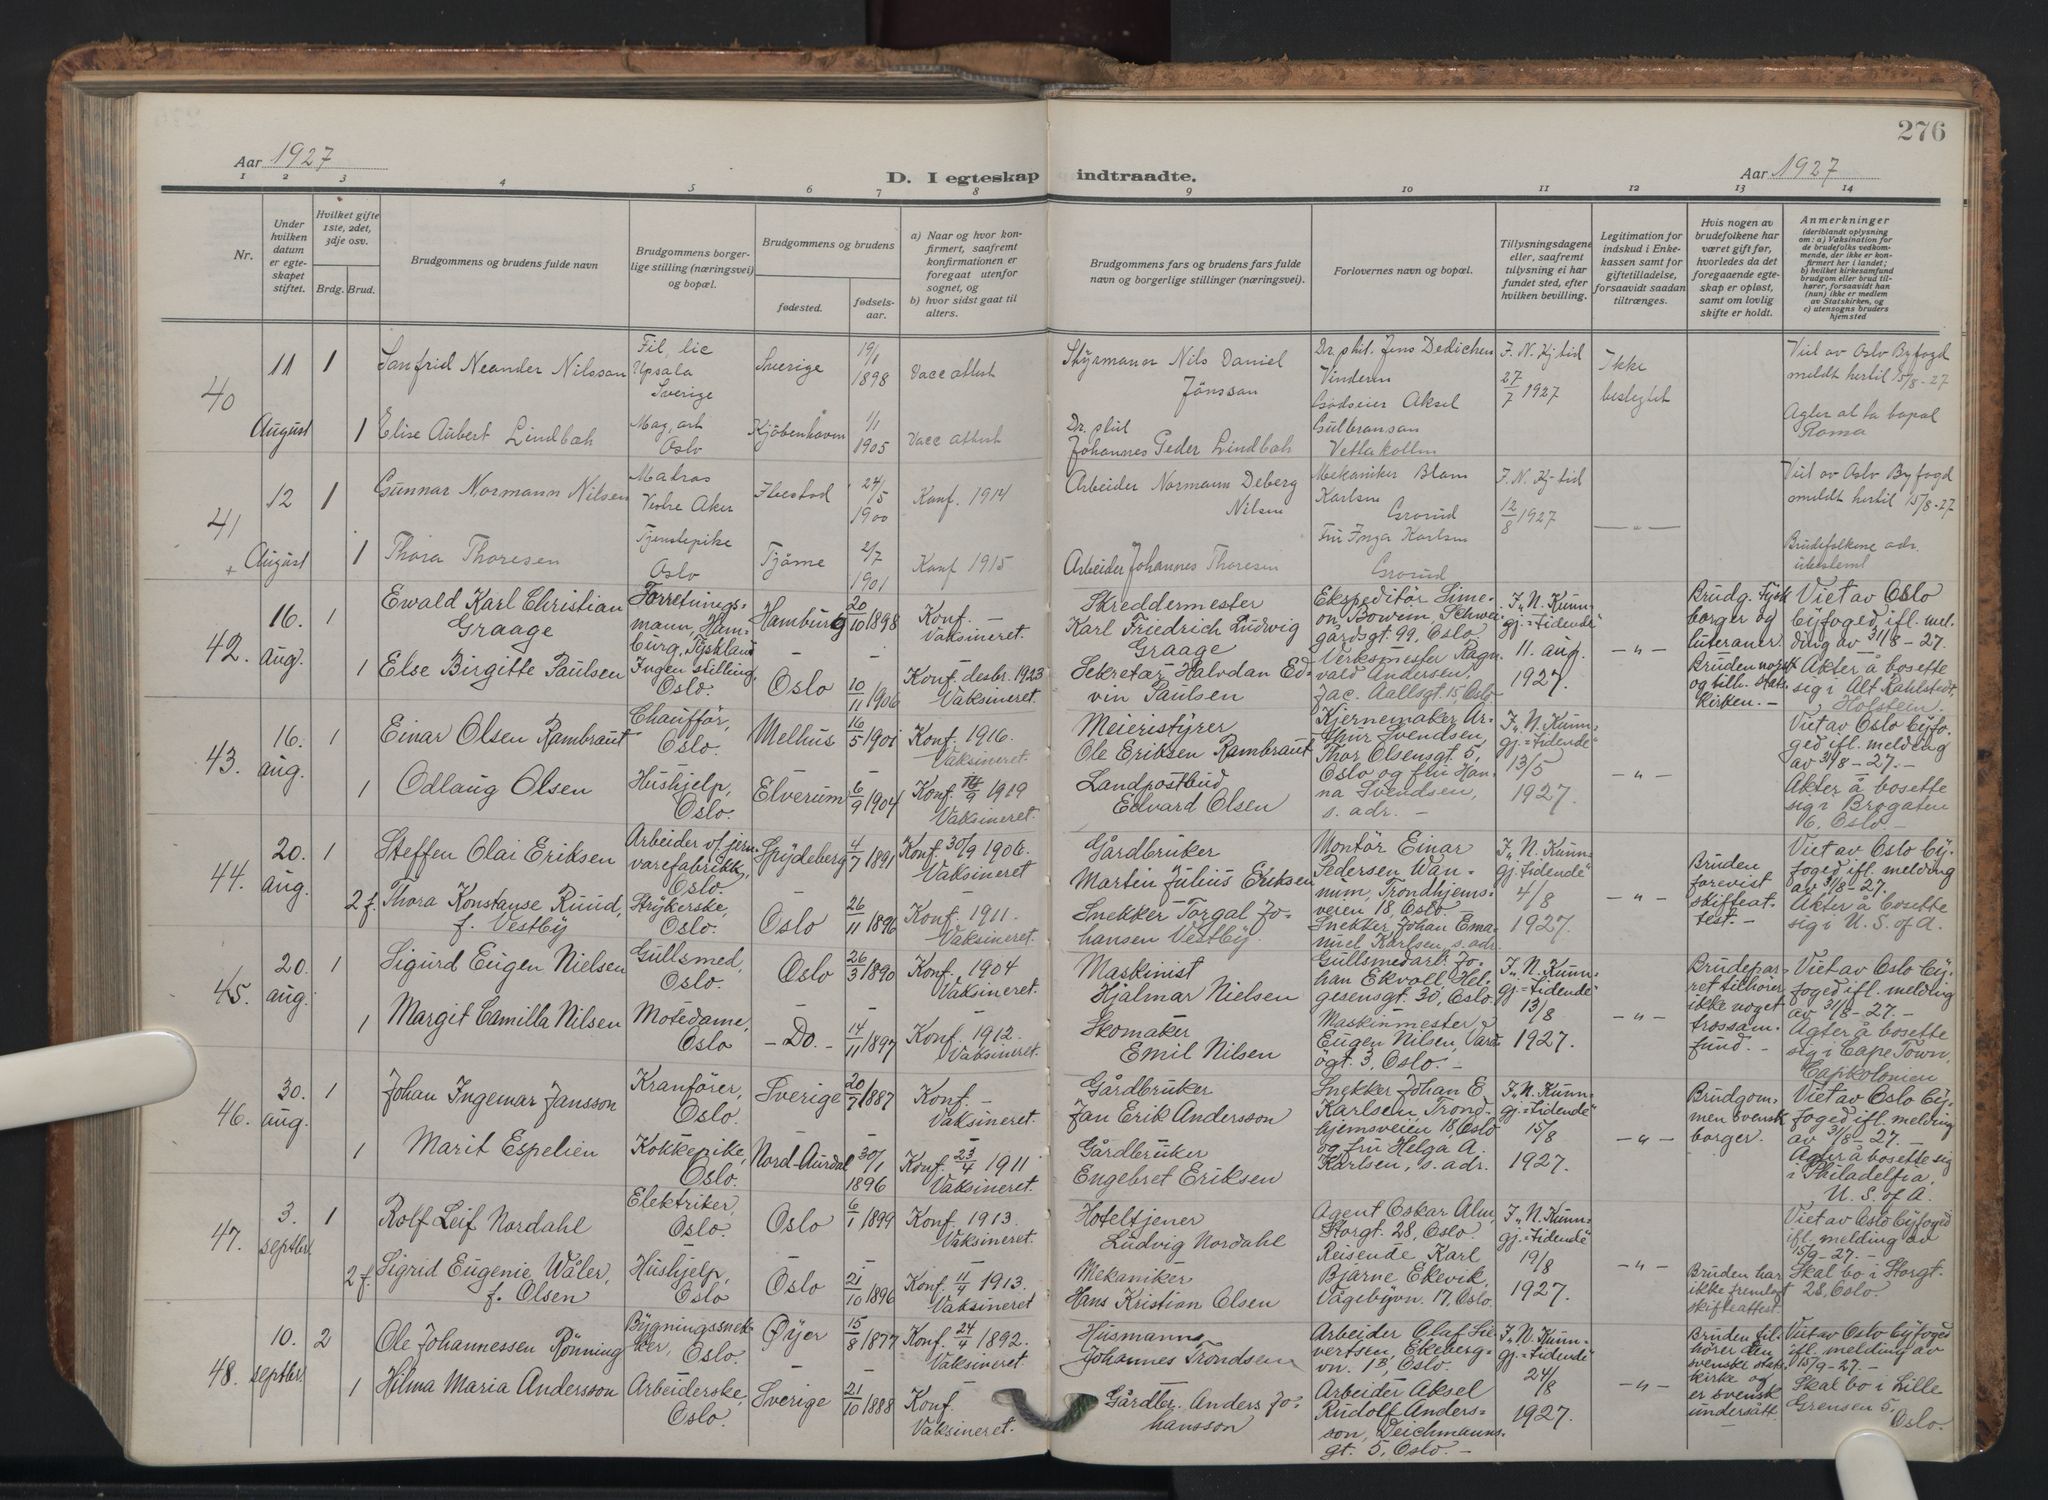 276
Aar 1927
D. I egteskap indtraadte.
Aar 1927
1 2 3 4 5 6 7 8 9 10 11 12 13 14
Nr.
Under hvilken datum er egteskapet stiftet.
Hvilket gifte 1ste, 2det, 3dje osv.
Brdg. Brud.
Brudgommens og brudens fulde navn
Brudgommens borgerlige stilling (næringsvei) og bopæl.
Brudgommens og brudens
fødested.
fødselsaar.
a) Naar og hvor konfirmert, saafremt konfirmationen er foregaat utenfor sognet, og
b) hvor sidst gaat til alters.
Brudgommens fars og brudens fars fulde navn og borgerlige stillinger (næringsvei).
Forlovernes navn og bopæl.
Tillysningsdagene eller, saafremt tillysning ei har fundet sted, efter hvilken bevilling.
Legitimation for indskud i Enkekassen samt for giftetilladelse, forsaavidt saadan tiltrænges.
Hvis nogen av brudefolkene har været gift før, hvorledes da det foregaaende egteskap er opløst, samt om lovlig skifte er holdt.
Anmerkninger
(deriblandt oplysning om: a) Vaksination for de brudefolks vedkommende, der ikke er konfirmert her i landet; b) hvilket kirkesamfund brudgom eller brud tilhører, forsaavidt han (hun) ikke er medlem av Statskirken, og c) utensogns bruders hjemsted
40
11 August
1
Sanfrid Neander Nilsson
Fil, lic Upsala Sverige
Sverige
19/1 1898
Vacc attest
Styrmann Nils Daniel Jönsson
Dr. phil. Jens Dedichen Vinderen
Godseier Aksel Gulbranson Vettakollen
F. N. Kj tid 27/7 1927
Ikke beslegtet
Viet av Oslo Byfogd meldt hertil 15/8-27
Agter at ta bopæl Roma
1
Elise Aubert Lindbæk
Mag, art Oslo
Kjöbenhavn
1/1 1905
Vacc attest
Dr. phil Johannes Peder Lindbæk
41
12 August
1
Gunnar Normann Nilsen
Matros Vestre Aker
Ibestad
24/5 1900
Konf. 1914
Arbeider Normann Deberg Nilsen
Mekaniker Karlsen Grorud
Fru Inga Karlsen Grorud
F. N. Kj-tid 12/8 1927
— " —
Viet av Oslo Byfogd meldt hertil 15/8-27
Brudefolkene adr. ubestemt
1
Thora Thoresen
Tjenstepike Oslo
Tjöme
2/7 1901
Konf 1915
Arbeider Johannes Thoresen
42.
16. aug.
1
Ewald Karl Christian Graage
Forretningsmann, Hamburg, Tyskland
Hamburg
20/10 1898
Konf. — Vaksineret.
Skreddermester Karl Friedrich Ludvig Graage
Ekspeditör Simeon Bowem Schweigårdsgt. 99, Oslo
Verksmester Ragnvald Andersen, Jac. Aallsgt. 15, Oslo
I „N. Kunngj.=tidende" 11. aug. 1927.
— " —
Brudg. tysk borger og luteraner
Bruden norsk og tilh. statskirken. —
Viet av Oslo byfoged, ifl. melding av 31/8-27.
Akter å bosette sig i Alt Rahlstedt, Holstein.
1
Else Birgitte Paulsen
Ingen stilling, Oslo.
Oslo
10/11 1906
Konf. desbr. 1923 Vaksineret.
Sekretær Halvdan Edvin Paulsen
43.
16. aug.
1
Einar Olsen Rambraut
Chauffør, Oslo.
Melhus
16/5 1901
Konf. 1916. Vaksineret.
Meieristyrer Ole Eriksen Rambraut
Kjernemaker Arthur Svendsen, Thor Olsensgt. 5, Oslo og fru Hanna Svendsen, s. adr. —
I „N. Kunngj.=tidende" 13/5 1927.
— " —
Viet av Oslo byfoged ifl. melding av 31/8-27. —
Akter å bosette sig i Brogaten 6, Oslo —
1
Odlaug Olsen
Hushjelp, Oslo.
Elverum
6/9 1904
Konf. 14/9 1919 Vaksineret.
Landpostbud Edvard Olsen
44.
20. aug.
1
Steffen Olai Eriksen
Arbeider v/ jernvarefabrikk, Oslo.
Spydeberg
4/7 1891
Konf. 30/9 1906. Vaksineret
Gårdbruker Martin Julius Eriksen
Montör Einar Pedersen Wannum, Trondhjemsveien 18, Oslo.
Snekker Johan Emanuel Karlsen, s. adr.
I „N. Kunngj. tidende" 4/8 1927.
— " —
Bruden forevist skifteattest. —
Viet av Oslo byfoged ifl. melding av 31/8-27.
Akter å bosette sig i U. S. of A.
2 f.
Thora Konstanse Ruud, f. Vestby
Strykerske, Oslo.
Oslo
26/11 1896
Konf. 1911. Vaksineret.
Snekker Torgal Johansen Vestby.
45.
20. aug.
1
Sigurd Eugen Nielsen
Gullsmed, Oslo.
Oslo
26/3 1890
Konf. 1904 Vaksineret.
Maskinist Hjalmar Nielsen
Gullsmedarb. Johan Ekvall, Helgesensgt. 30, Oslo
Maskinmester Eugen Nilsen, Vardögt. 3, Oslo. —
I „N. Kunngj.=tidende" 13/8 1927.
— " —
Brudeparret tilhører ikke noget trossamfund. —
Viet av Oslo byfoged ifl. melding av 31/8-27. —
Agter å bosette sig i Cape Town, Capkolonien
1
Margit Camilla Nilsen
Motedame, Oslo
— Do. —
14/11 1897
Konf. 1912. Vaksineret.
Skomaker Emil Nilsen
46.
30. aug.
1
Johan Ingemar Jansson
Kranfører, Oslo.
Sverige
20/7 1887
Konf. — Vaksineret.
Gårdbruker Jan Erik Andersson
Snekker Johan E. Karlsen, Trondhjemsveien 18, Oslo og fru Helga A. Karlsen, s. adr.
I „N. Kunngj.=tidende" 15/8 1927.
— " —
Brudgommen svensk borger.
Viet av Oslo byfoged ifl. melding av 31/8-27. —
Agter å bosette sig i Philadelfia, U. S. of A.
1
Marit Espelien
Kokkepike, Oslo.
Nord-Aurdal
30/1 1896
Konf. 23/4 1911 Vaksineret.
Gårdbruker Engebret Eriksen
47.
3. septbr.
1
Rolf Leif Nordahl
Elektriker, Oslo.
Oslo
6/1 1899
Konf. 1913. Vaksineret.
Hoteltjener Ludvig Nordahl
Agent Oskar Alm, Storgt. 28, Oslo.
Reisende Karl Bjarne Ekevik, Vågebyvn. 17, Oslo.
I „N. Kunngj.=tidende" 19/8 1927.
— " —
Bruden har ikke fremlagt skifteattest.
Viet av Oslo byfoged ifl. melding av 15/9-27. —
Skal bo i Storgt. 28, Oslo.
2 f.
Sigrid Eugenie Wåler, f. Olsen
Hushjelp, Oslo
Oslo
21/10 1896
Konf. 11/4 1913. Vaksineret
Mekaniker Hans Kristian Olsen
48.
10. septbr.
2
Ole Johannessen Rønning
Bygningssnekker, Oslo.
Øyer
15/8 1877
Konf. 24/4 1892. Vaksineret.
Husmann Johannes Trondsen
Arbeider Olaf Sievertsen, Ekebergvn. 1B, Oslo.
Arbeider Aksel Rudolf Andersson, Deichmannsgt. 5, Oslo. —
I „N. Kunngj.=tidende" 24/8 1927.
— " —
Bruden tilhører den svenske statskirke og er svensk undersått.
Viet av Oslo byfoged ifl. melding av 15/9-27. —
Skal bo i Lille Grensen 5, Oslo.
1
Hilma Maria Andersson
Arbeiderske, Oslo.
Sverige
21/10 1888
Konf. Vaksineret.
Gårdbr. Anders Johansson